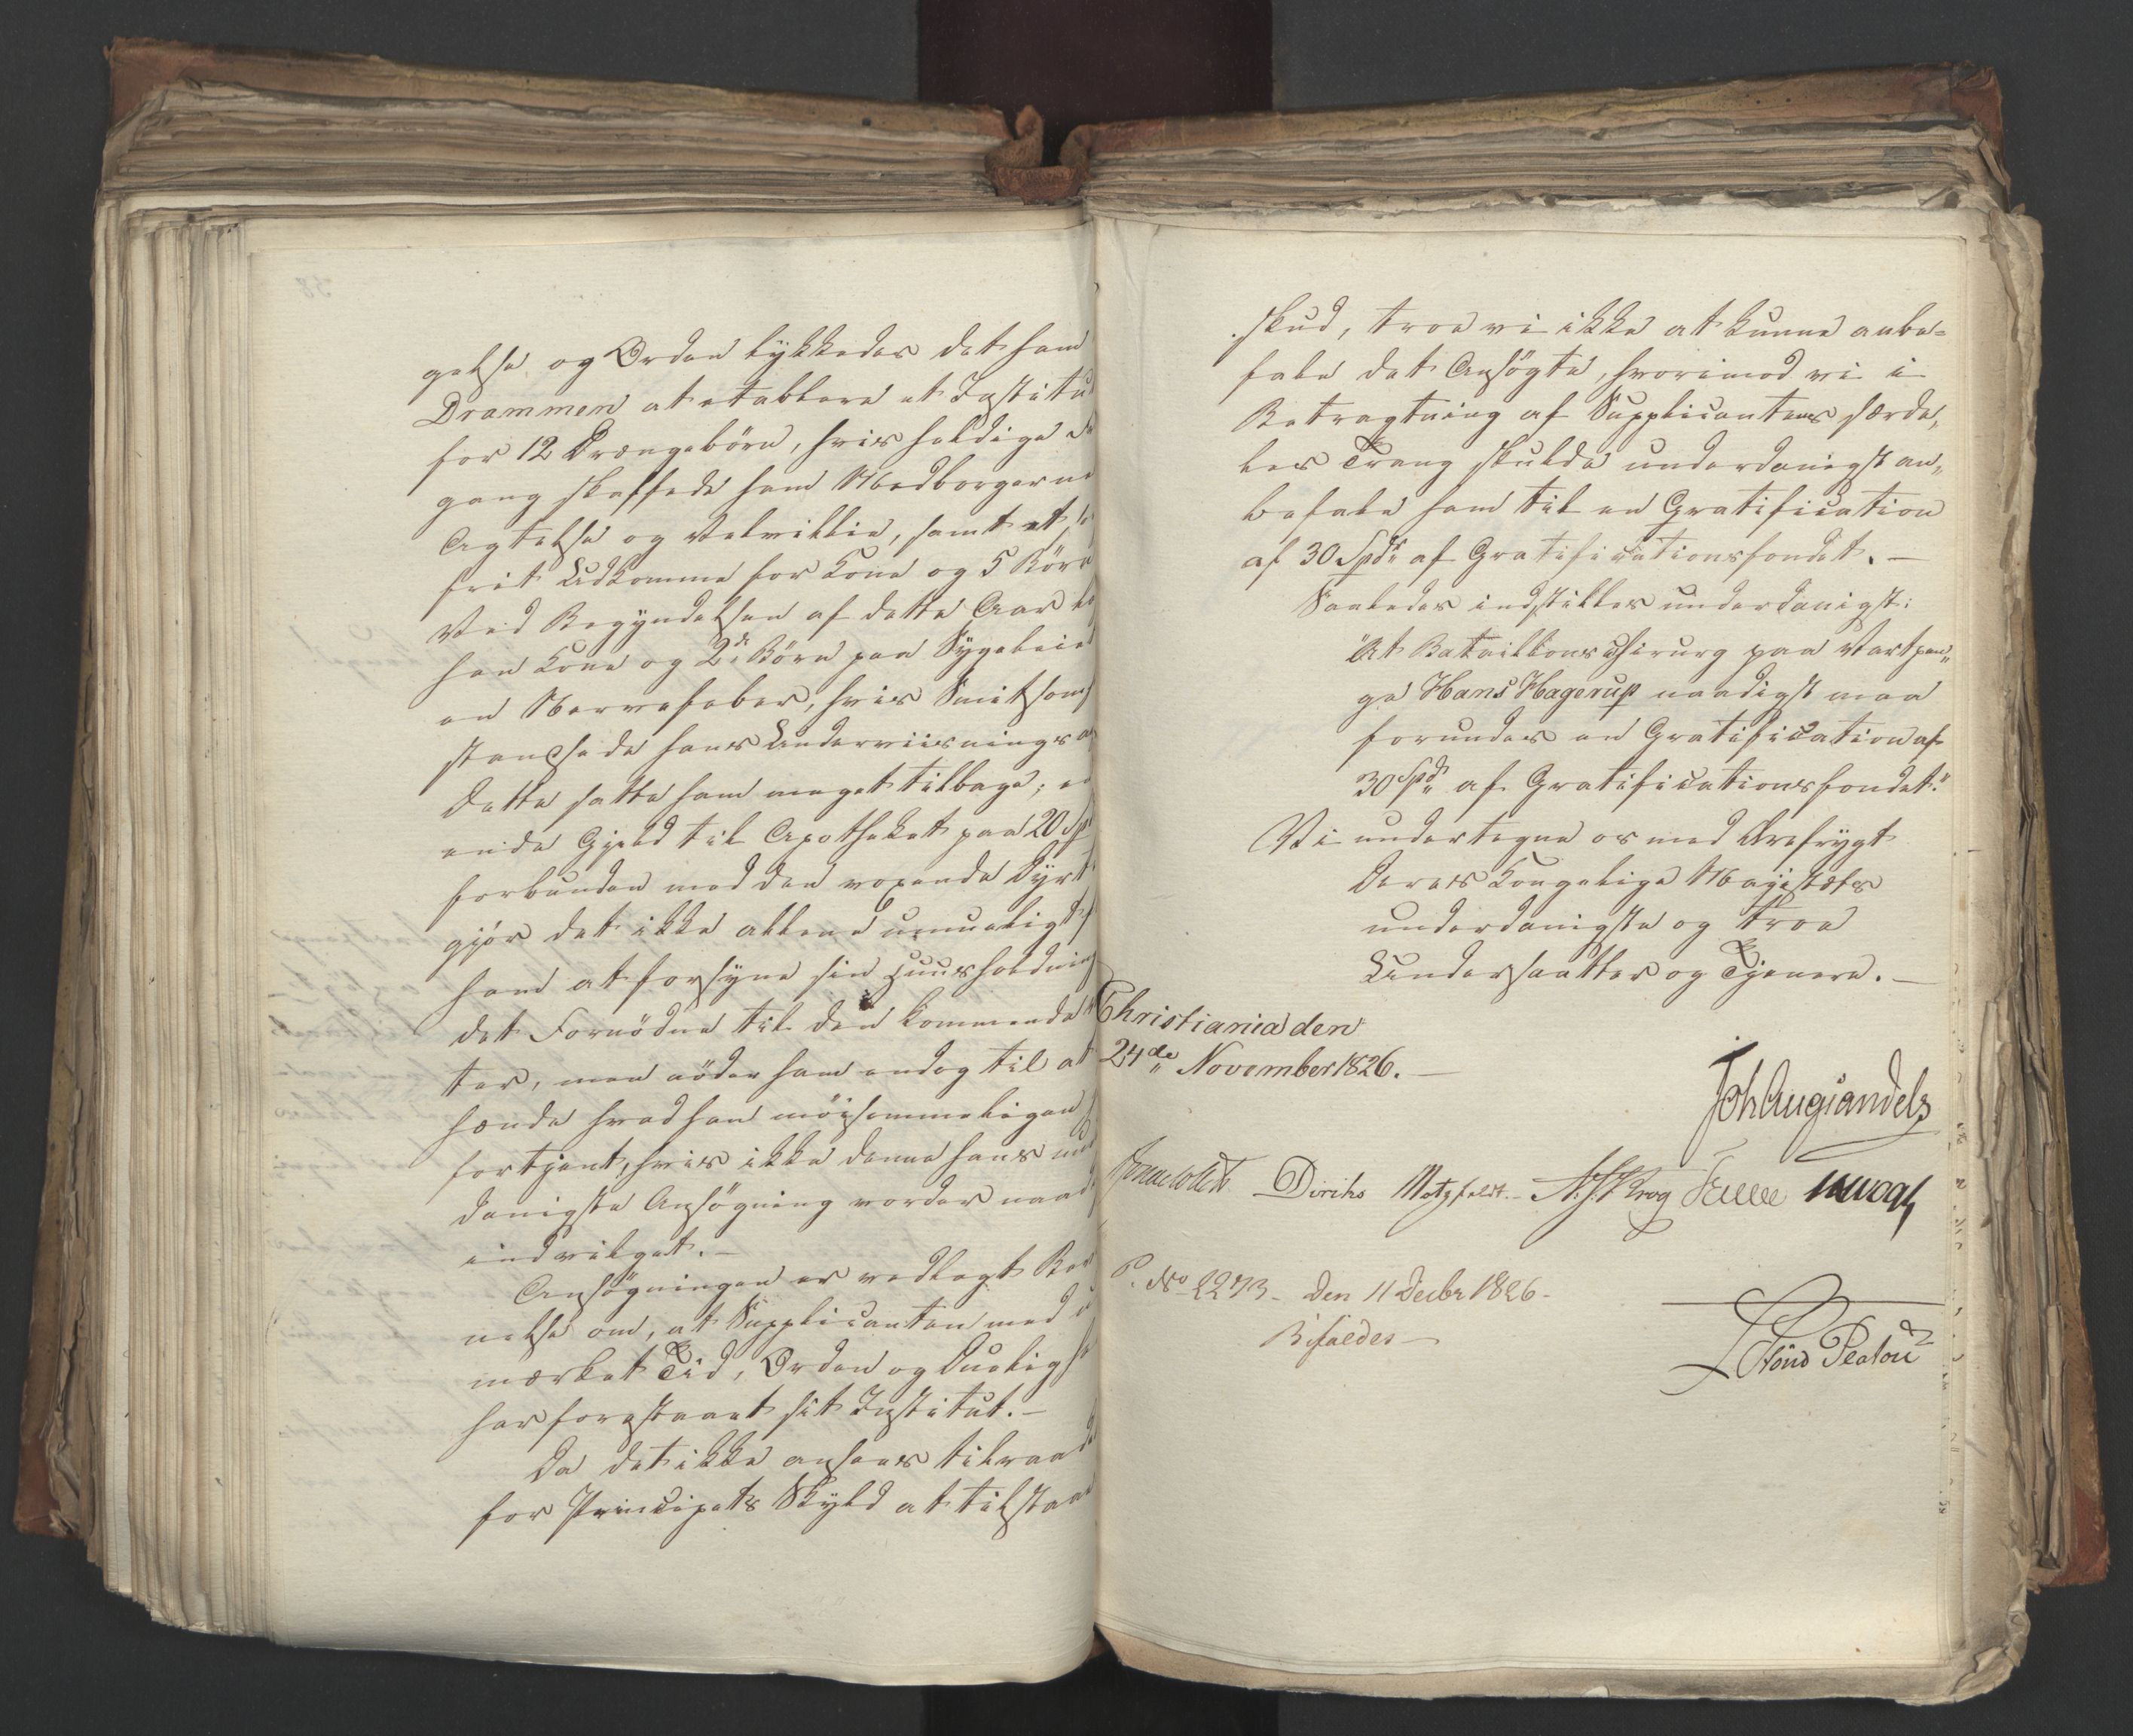 gelse og Orden lykkedes det ham
Drammen at etablere et Institut
for 12 Drengebørn, hvis heldige
gang skaffede ham Medborgerne
Agtelse og Velvillie, samt et
frit Udkomme for Kone og 5 Børn
Ved Begyndelsen af dette Aar
han Kone og 2de Børn paa Sygeleiet
en Nervefeber, hvis Smitsom
standsede hans Underviisnings
Dette satte ham meget tilbage,
ende Gjeld til Apotheket paa 20 Spd
forbunden med den voxende Dyrt
gjør det ikke allene umueligt
ham at forsyne sin Huusholdning
det Fornødne til den kommende
ter, men nøder ham endog til at
hænde hvad han møisommeligen
fortjent, hvis ikke denne hans
danigste Ansøgning vorder naad
indvilget. –
Ansøgningen er vedlagt
nelse om, at Supplicanten med
mærket Tid, Orden og Duelighe
har forestaaet sit Institut. –
Da det ikke ansees tilraade
for Principets Skyld at tilstaae
skud, troe vi ikke at kunne anbe=
fale det Ansøgte, hvorimod vi i
Betragtning af Supplicantens særde„
les Trang skulde underdanigst an„
befale ham til en Gratification
af 30 Spdr af Gratificationsfondet. –
Saaledes indstilles underdanigst:
"At Bataillonschirurg paa Vartpen„
ge Hans Hagerup naadigst maa
forundes en Gratification af
30 Spdr af Gratificationsfondet."
Vi undertegne os med Ærefrygt
Deres Kongelige Majestæts
underdanigste og troe
Undersaatter og Tjenere. –
Christiania den
24de November 1826. –
Joh Aug Sandels
Jonas Collett Diriks Motzfeldt. – A.S. Krog
P. No 2273 – Den 11 Decbr 1826 –
Bifaldes –